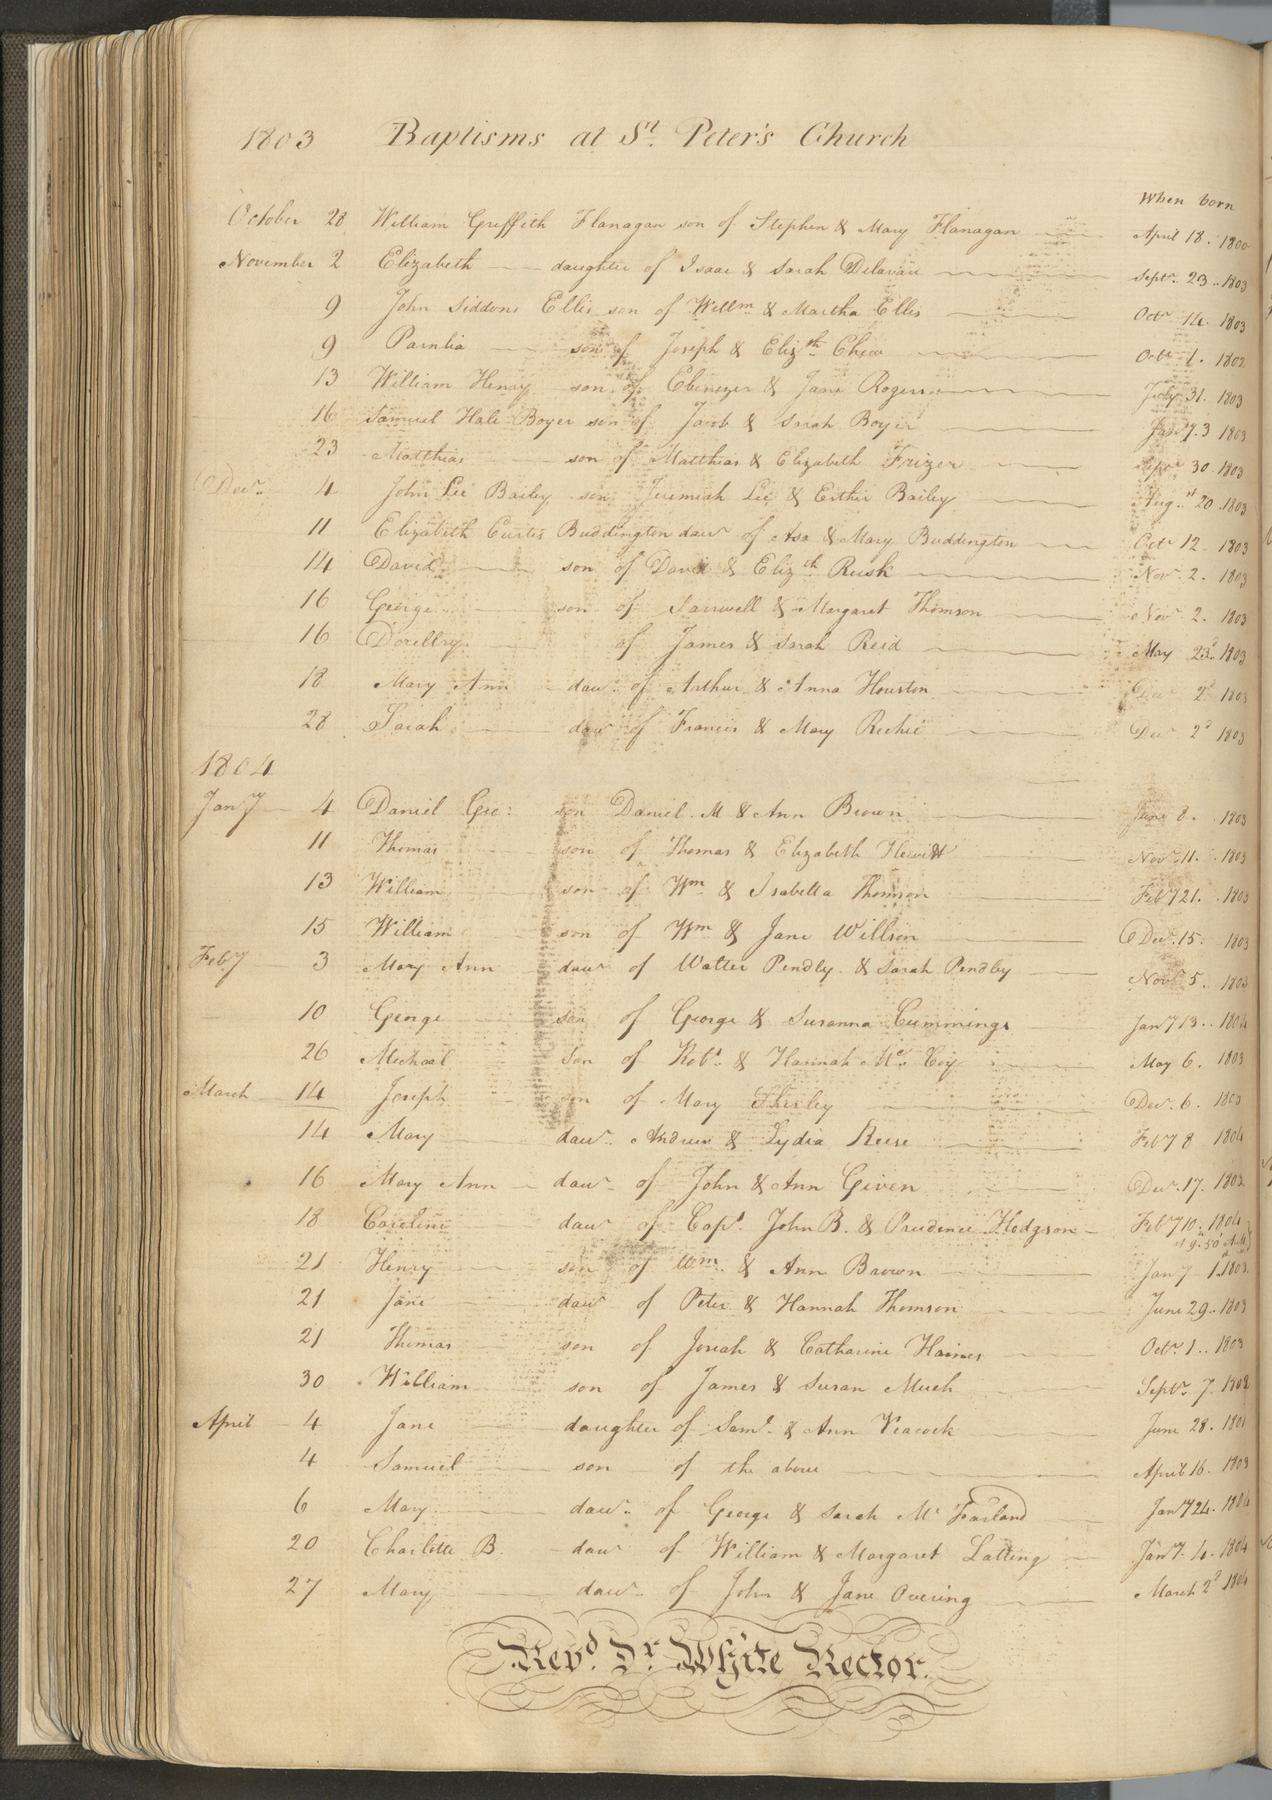 1803 Baptisms at St. Peter's Church
When born
October 28 William Griffith Flanagan son of Stephen & Mary Flanagan April 18. 1800
November 2 Elizabeth daughter of Isaac & Sarah Delavau Septr. 23. 1803
9 John Siddons Ellis son of Willm & Martha Ellis Octr 14. 1803
9 son of Joseph & Elizth Chew Octr 1. 1802
13 William Henry son of Ebenezer & Jane Rogers July 31. 1803
16 Samuel Hale Boyer son of Jacob & Sarah Boyer Jany. 3 1803
23 Matthias son of Matthias & Elizabeth Frizer Septr 30 1803
Decr. 4 John Lee Bailey son Jeremiah Lee & Esther Bailey Augst 20. 1803
11 Elizabeth Curtis Buddington daur of Asa & Mary Buddington Octr 12. 1803
14 David son of David & Elizth Rusk Novr. 2. 1803
16 George son of & Margaret Thomson Novr 2. 1803
16 of James & Sarah Reid May 23d. 1803
18 Mary Ann daur. of Arthur & Anna Houston Decr 2d 1803
28 Sarah daur of Francis & Mary Reshie Decr 2d 1803
1804
Jany 4 Daniel Geo: son Daniel. M & Ann Brown June 8. 1803
11 Thomas son of Thomas & Elizabeth Hewitt Novr. 11. 1803
13 William son of Wm & Isabella Thomson Feby 21. 1803
15 William son of Wm & Jane Willson Decr. 15. 1803
Feby 3 Mary Ann daur of Walter Pendly. & Sarah Pendley Novr 5. 1803
10 George son of George & Susanna Cummings Jany 13. 1804
26 Michael Son of Robt. & Hannah Mc. Coy May 6. 1803
March 14 Joseph son of Mary Shirley Decr. 6. 1803
14 Mary daur. Andrew & Lydia Reese Feby 8 1804
16 Mary Ann daur. of John & Ann Given Decr. 17. 1803
18 Caroline daur of Capt. John B. & Prudence Hodgson Feby 10. 1804
at 9.50' A.M
21 Henry son of Wm. & Ann Brown Jany 1. 1803.
21 Jane daur of Peter & Hannah Thomson June 29. 1803
21 Thomas son of Josiah & Catharine Haines Octr. 1. 1803
30 William son of James & Susan Much Septr. 7. 1802
April 4 Jane daughter of Saml. & Ann Veacock June 28. 1801
4 Samuel son of the above April 16. 1803
6 Mary daur. of George & Sarah Mc Farland Jany 24. 1804
20 Charlotte B. daur of William & Margaret Latting Jany. 4. 1804
27 Mary daur. of John & Jane Overing March 2d 1804
Revd. Dr White Rector.